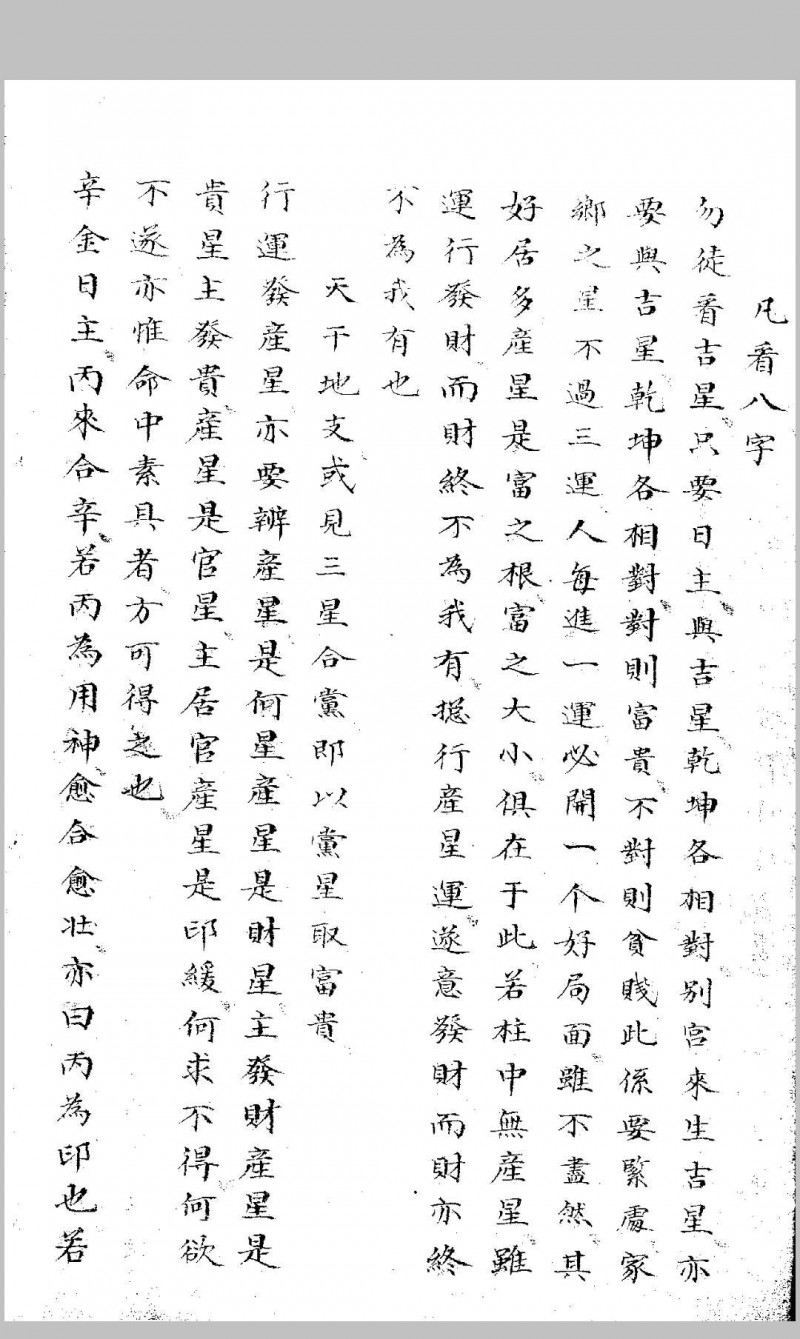 凡看八字
勿徒看吉星只要日主與吉星乾坤各相對別宮來生吉星亦
要與吉星乾坤各相對對則富貴不對則貧賤此係要緊處家
鄉之星不過三運人每進一運必開一个好局面雖不盡然其
好居多産星是富之根富之大小俱在于此若柱中無産星雖
運行發財而財終不為我有總行産星運遂意發財而財亦終
不為我有也
天干地支或見三星合黨即以黨星取富貴
行運發産星亦要辨産星是何星産星是財星主發財産星是
貴星主發貴産星是官星主居官産星是印緩何求不得何欲
不遂亦惟命中素具者方可得之也
辛金日主丙來合辛若丙為用神愈合愈壯亦曰丙為印也若